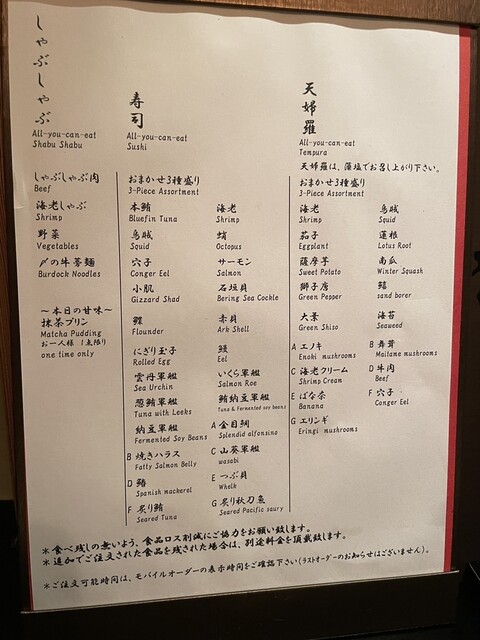 しゃぶしゃぶ
All-you-can-eat
Shabu Shabu
しゃぶしゃぶ肉
Beef
海老しゃぶ
Shrimp
野菜
Vegetables
〆の牛蒡麺
Burdock Noodles
〜本日の甘味〜
抹茶プリン
Matcha Pudding
お一人様 1点限り
one time only
寿司
All-you-can-eat
Sushi
おまかせ3種盛り
3-Piece Assortment
本鮪 海老
Bluefin Tuna Shrimp
烏賊 蛸
Squid Octopus
穴子 サーモン
Conger Eel Salmon
小肌 石垣貝
Gizzard Shad Bering Sea Cockle
鰈 赤貝
Flounder Ark Shell
にぎり玉子 鰻
Rolled Egg Eel
雲丹軍艦 いくら軍艦
Sea Urchin Salmon Roe
葱鮪軍艦 鮪納豆軍艦
Tuna with Leeks Tuna & Fermented soy beans
納豆軍艦 A 金目鯛
Fermented Soy Beans Splendid alfonsino
B 焼きハラス C 山葵軍艦
Fatty Salmon Belly wasabi
D 鰆 E つぶ貝
Spanish mackerel Whelk
F 炙り鮪 G 炙り秋刀魚
Seared Tuna Seared Pacific saury
天婦羅
All-you-can-eat
Tempura
天婦羅は、藻塩でお召し上がり下さい。
おまかせ3種盛り
3-Piece Assortment
海老 烏賊
Shrimp Squid
茄子 蓮根
Eggplant Lotus Root
薩摩芋 南瓜
Sweet Potato Winter Squash
獅子唐 鱚
Green Pepper sand borer
大葉 海苔
Green Shiso Seaweed
A エノキ B 舞茸
Enoki mushrooms Maitame mushrooms
C 海老クリーム D 牛肉
Shrimp Cream Beef
E ばな奈 F 穴子
Banana Conger Eel
G エリンギ
Eringi mushrooms
＊食べ残しの無いよう、食品ロス削減にご協力をお願い致します。
＊追加でご注文された食品を残された場合は、別途料金を頂戴致します。
＊ご注文可能時間は、モバイルオーダーの表示時間をご確認下さい(ラストオーダーのお知らせはございません)。